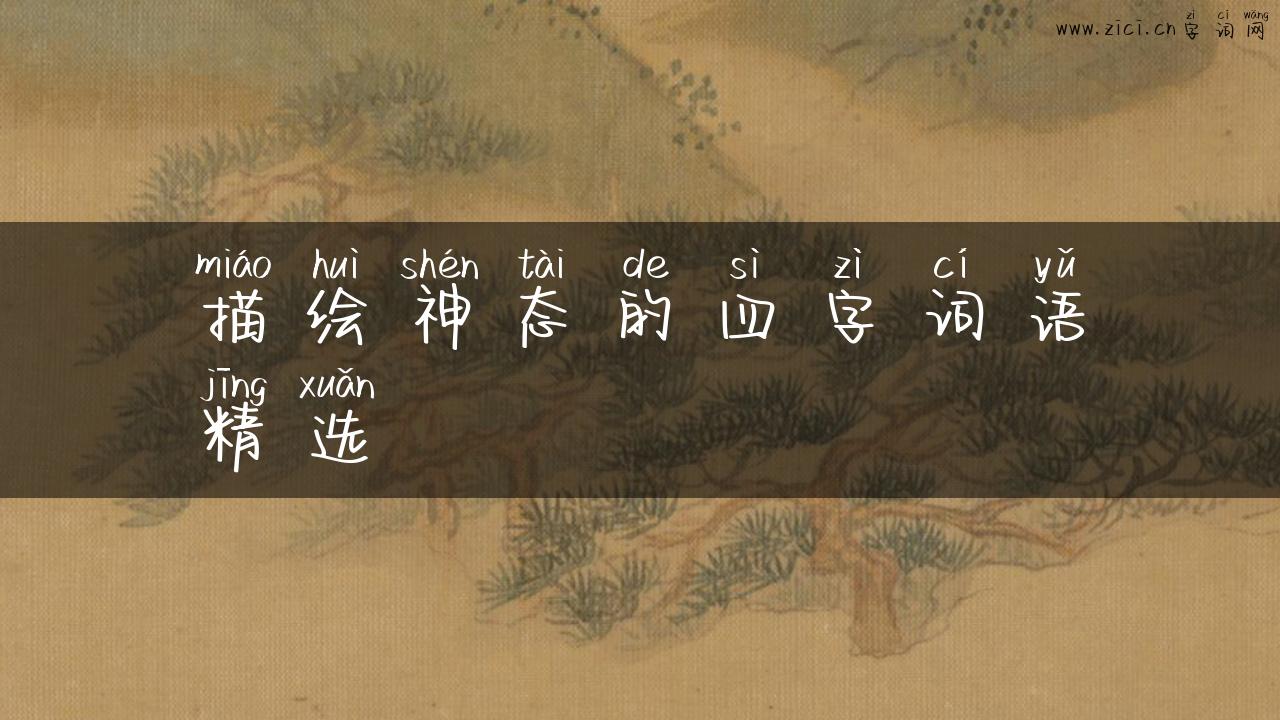 zì cí wǎng
www.zici.cn 字词网
miáo huì shén tài de sì zì cí yǔ
描绘神态的四字词语
jīng xuǎn
精选